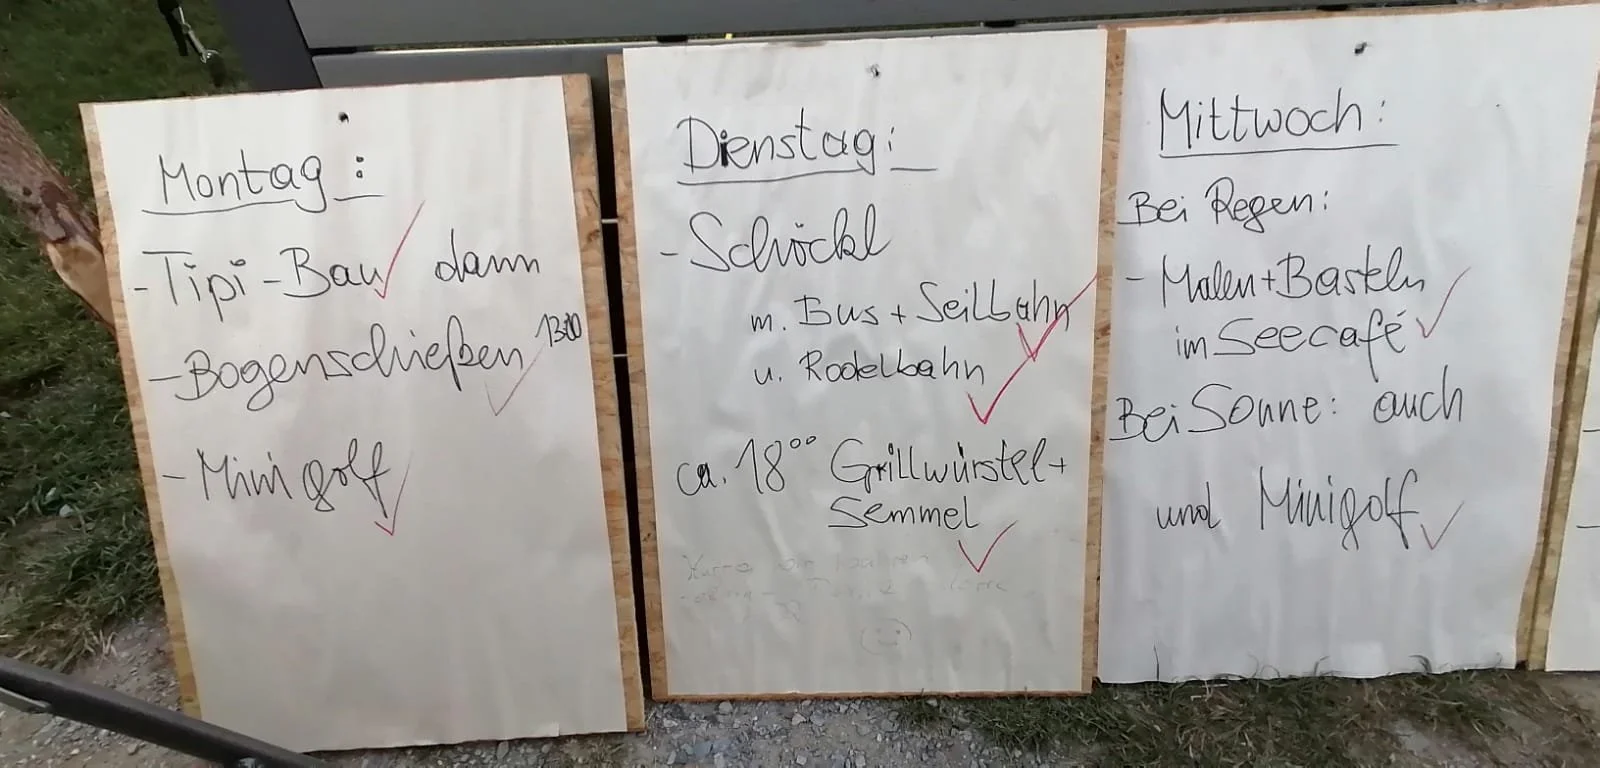 Montag:
- Tipi-Bau dann
- Bogenschießen 13:00
- Minigolf
Dienstag:
- Schöckl
m. Bus + Seilbahn
u. Rodelbahn
ca. 18°° Grillwürstel +
Semmel
Mittwoch:
Bei Regen:
- Malen + Basteln
im Seecafé
Bei Sonne: auch
und Minigolf